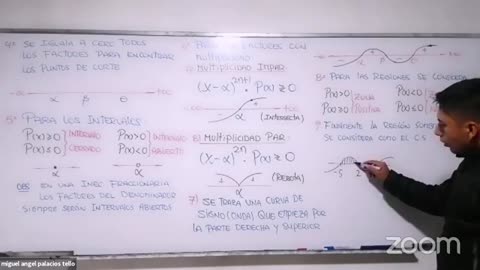 4º SE IGUALA A CERO TODOS
LOS FACTORES PARA ENCONTRAR
LOS PUNTOS DE CORTE
-∞ +∞
α β θ
5º PARA LOS INTERVALOS:
P(x)≥0 } INTERVALO P(x)>0 } INTERVALO
P(x)≤0 } CERRADO P(x)<0 } ABIERTO
α α
OBS EN UNA INEC. FRACCIONARIA
LOS FACTORES DEL DENOMINADOR
SIEMPRE SERÁN INTERVALOS ABIERTOS
FACTORES CON
MULTIPLICIDAD
MULTIPLICIDAD IMPAR:
(x-α)²ⁿ⁺¹ · P(x) ≷ 0
-∞ + +∞
α (INTERSECTA)
B) MULTIPLICIDAD PAR:
(x-α)²ⁿ · P(x) ≷ 0
α (REBOTA)
7) SE TRAZA UNA CURVA DE
SIGNO (ONDA) QUE EMPIEZA POR
LA PARTE DERECHA Y SUPERIOR
-∞ - + - + +∞
8º PARA LAS REGIONES SE CONSIDERA
P(x)>0 } ZONA P(x)<0 } ZONA
P(x)≥0 } POSITIVA P(x)≤0
9 FINALMENTE LA REGIÓN
SE CONSIDERA COMO EL CS
-5 2
miguel angel palacios tello
zoom